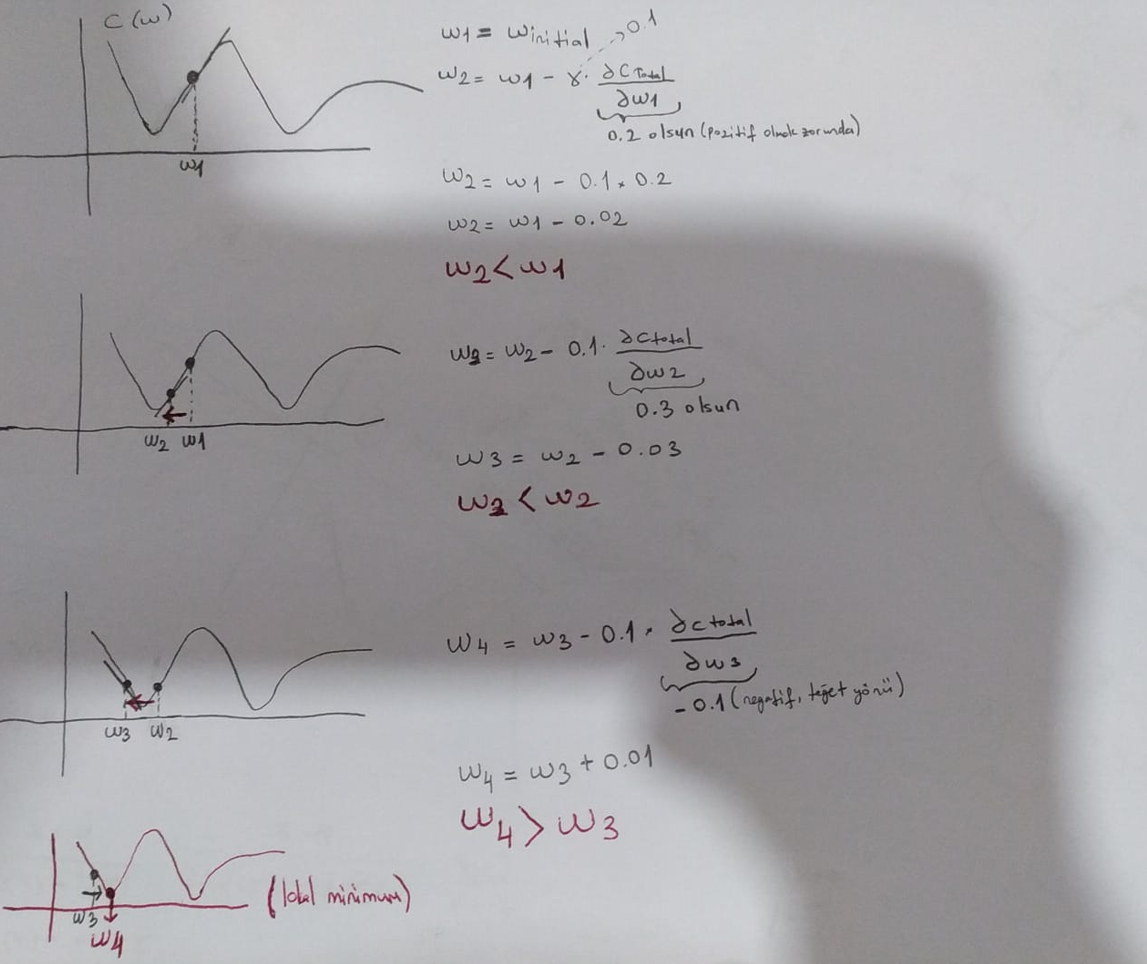 C(w)
w1 = winitial → 0.1
w2 = w1 - γ · ∂CTotal / ∂w1
0.2 olsun (pozitif olmak zorunda)
w1
w2 = w1 - 0.1 * 0.2
w2 = w1 - 0.02
w2 < w1
w3 = w2 - 0.1 · ∂Ctotal / ∂w2
0.3 olsun
w2 w1
w3 = w2 - 0.03
w3 < w2
w4 = w3 - 0.1 * ∂ctotal / ∂w3
-0.1 (negatif, teğet yönü)
w3 w2
w4 = w3 + 0.01
w4 > w3
(lokal minimum)
w3
w4